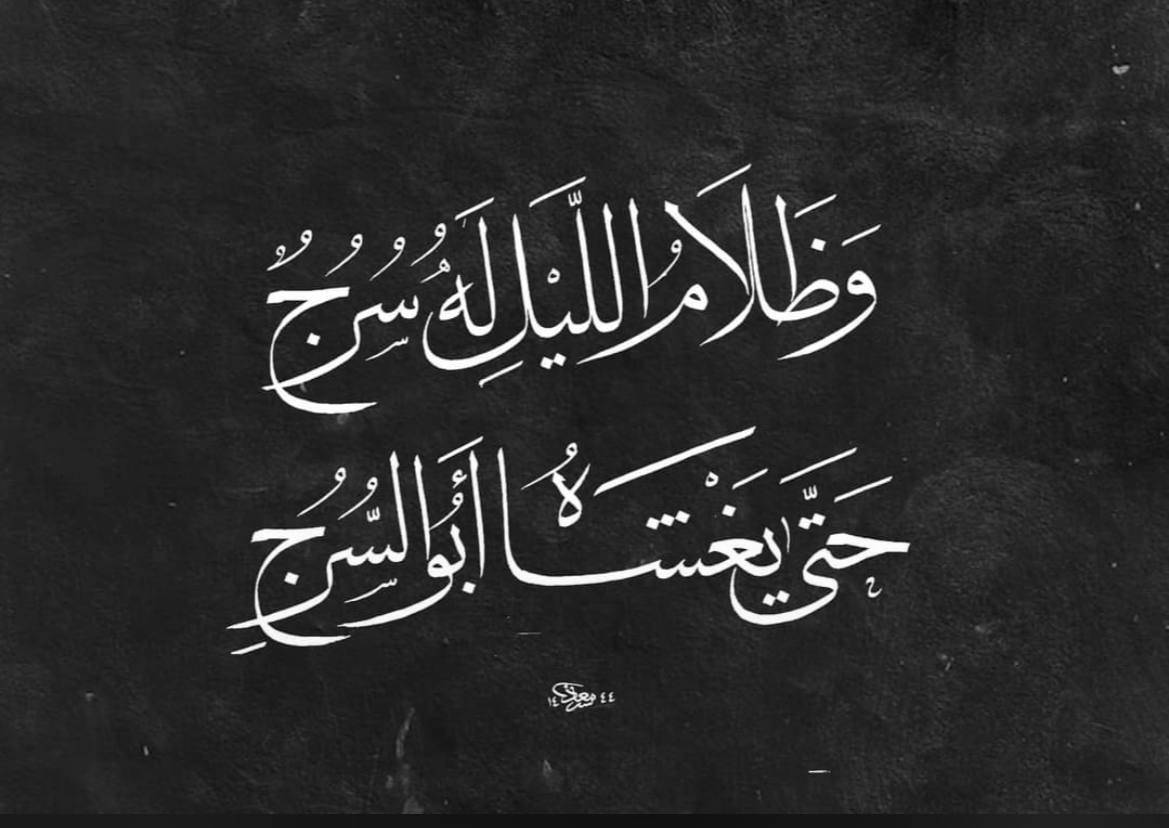 وَظَلَامُ اللَّيْلِ لَهُ سُرُجٌ
حَتَّى يَغْشَاهُ أَبُو السُّرُجِ
١٤٤٤